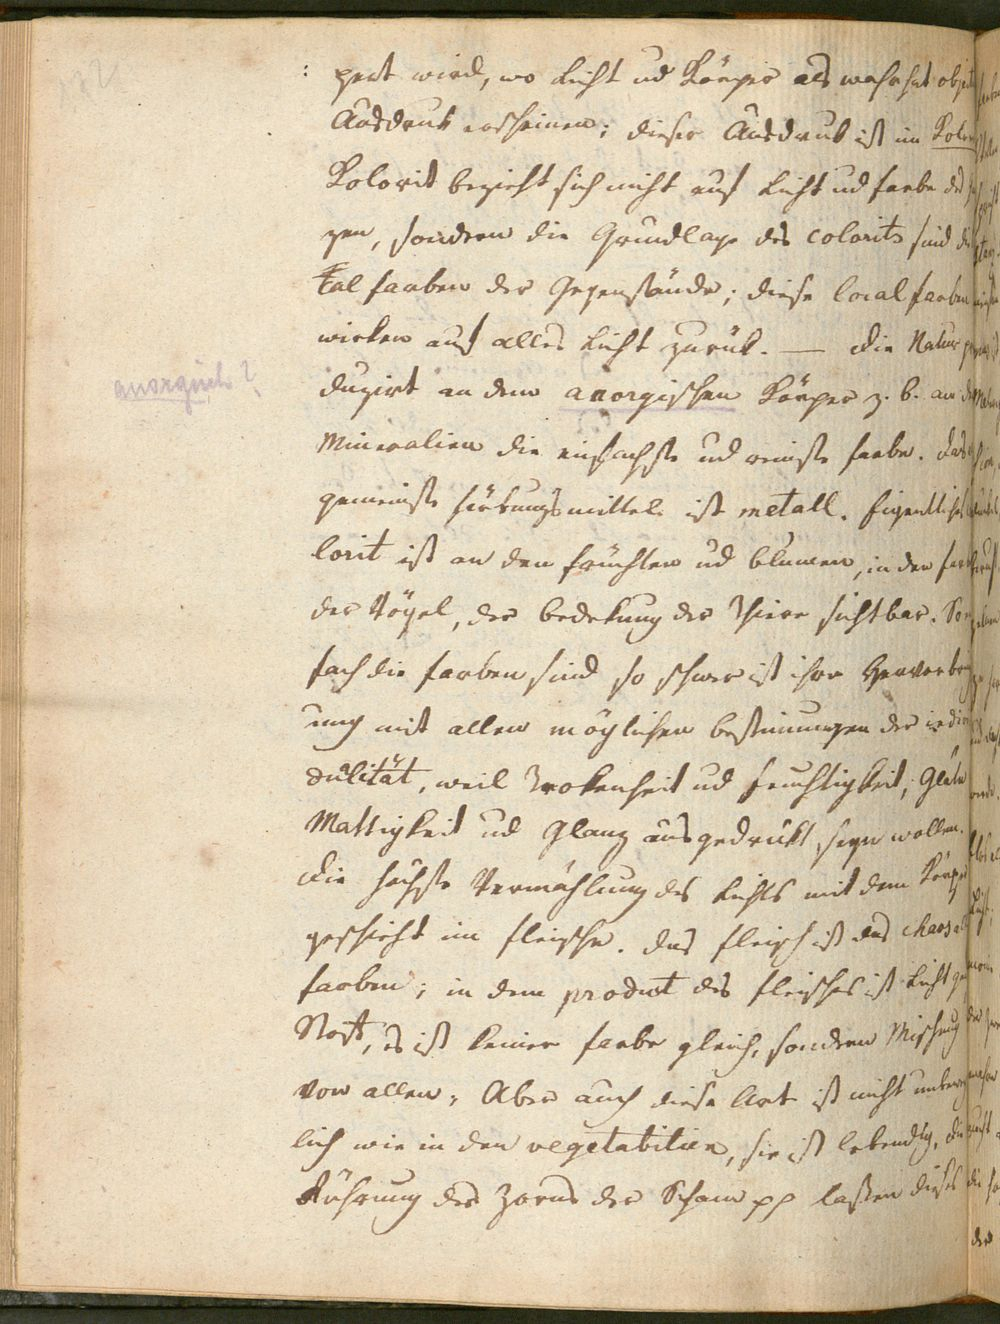 132
: pert wird, wo Licht ud Körper als wahrhat objek
Ausdruk erscheinen; dieser Ausdruk ist im Kolor
Kolorit bezieht sich nicht auf Licht ud farbe des
gen, sondern die Grundlage des colorits sind die
tal farben der Gegenstände; diese local farben
wirken auf alles Licht zurük. — Die Natur pro
duzirt an dem anorgischen Körper z. b. an den
anorgisch?
Mineralien die einfachste ud reinste farbe. Das
gemeinste färbungsmittel ist metall. Eigentliches
lorit ist an den früchten ud blumen, in den
der Vögel, der bedekung der Thiere sichtbar. So
fach die farben sind so schwer ist ihre Hervorbrin
ung mit allen möglichen bestimungen der indivi
dulität, weil Trokenheit ud feuchtigkeit, Glätte
Mattigkeit ud Glanz ausgedrükt seyn wollen.
Die höchste Vermählung des Lichts mit dem Körper
geschieht im fleische. Das fleisch ist das chaos all
farben; in dem product des fleisches ist Licht ge
Stoff, es ist keiner farbe gleich, sondern Mischung
von allen; Aber auch diese Art ist nicht unbeweg
lich wie in den vegetabilien, sie ist lebendig, die
Rührung des Zorns der Scham pp lassen dieses